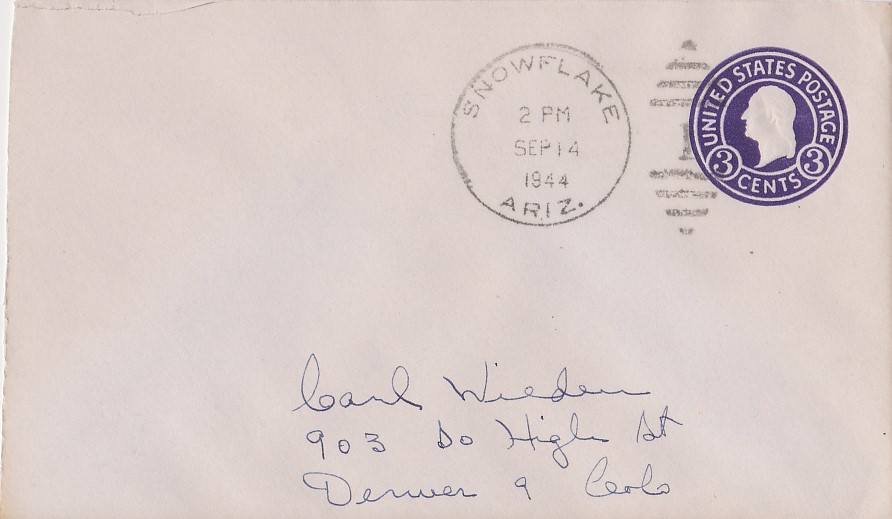 SNOWFLAKE
2 PM
SEP 14
1944
ARIZ.
UNITED STATES POSTAGE
3 CENTS 3
Carl Wieden
903 So High St
Denver 9 Colo